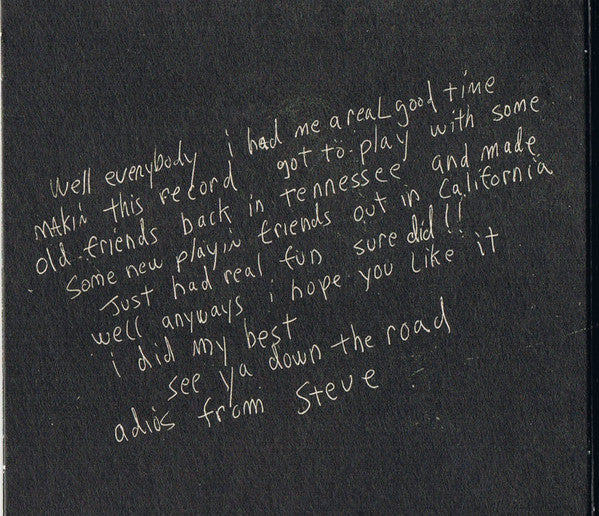 well everybody i had me a reaL good time
makin this record got to play with some
old friends back in tennessee and made
Some new playin friends out in California
Just had real fun sure did!!
well anyways i hope you Like it
i did my best
see ya down the road
adios from Steve